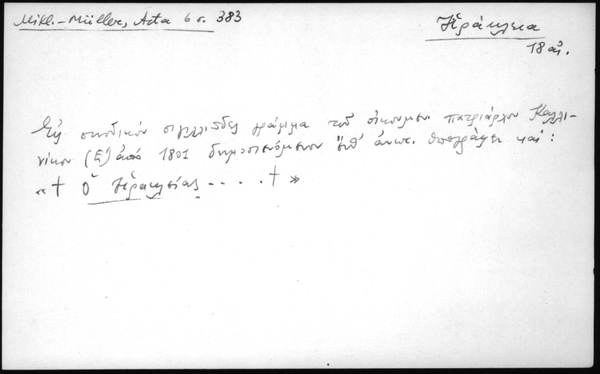 Mikl.-Müller, Acta 6 σ. 383
Ἡράκλεια
18 αἰ.
Εἰς συνοδικόν σιγιλλιῶδες γράμμα τοῦ οἰκουμεν. πατριάρχου Καλλι-
νίκου (Ε´) ἀπό 1801 δημοσιευόμενον ἔνθ᾽ ἀνωτ. ὑπογράφει καί:
«† Ὁ Ἡρακλείας . . . . † »